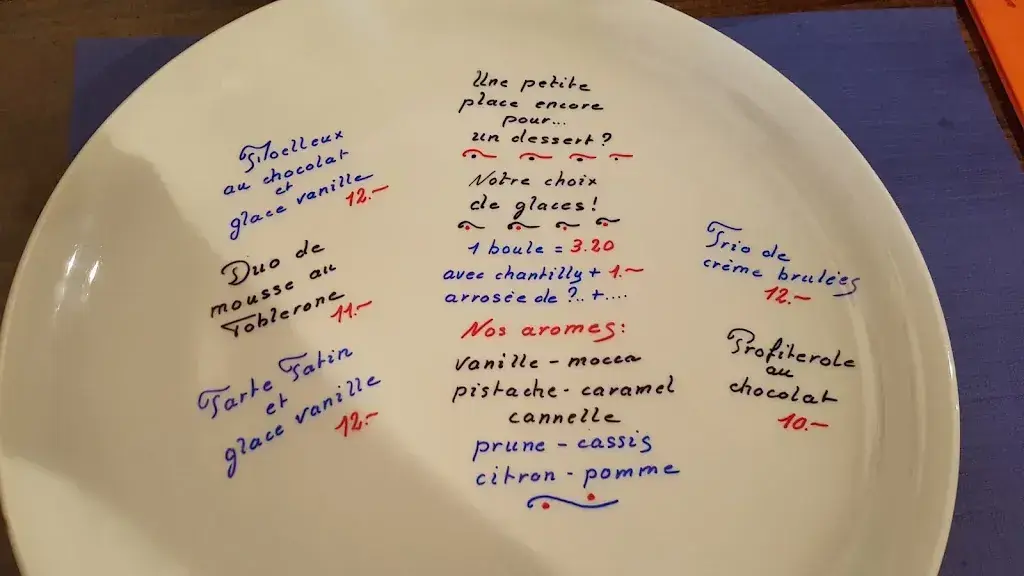 Moelleux
au chocolat
et
glace vanille
12.-
Duo de
mousse au
Toblerone
11.-
Tarte Tatin
et
glace vanille
12.-
Une petite
place encore
pour...
un dessert?
Notre choix
de glaces!
1 boule = 3.20
avec chantilly + 1.-
arrosée de ?.. +....
Nos aromes:
vanille - mocca
pistache - caramel
cannelle
prune - cassis
citron - pomme
Trio de
crème brulées
12.-
Profiterole
au
chocolat
10.-